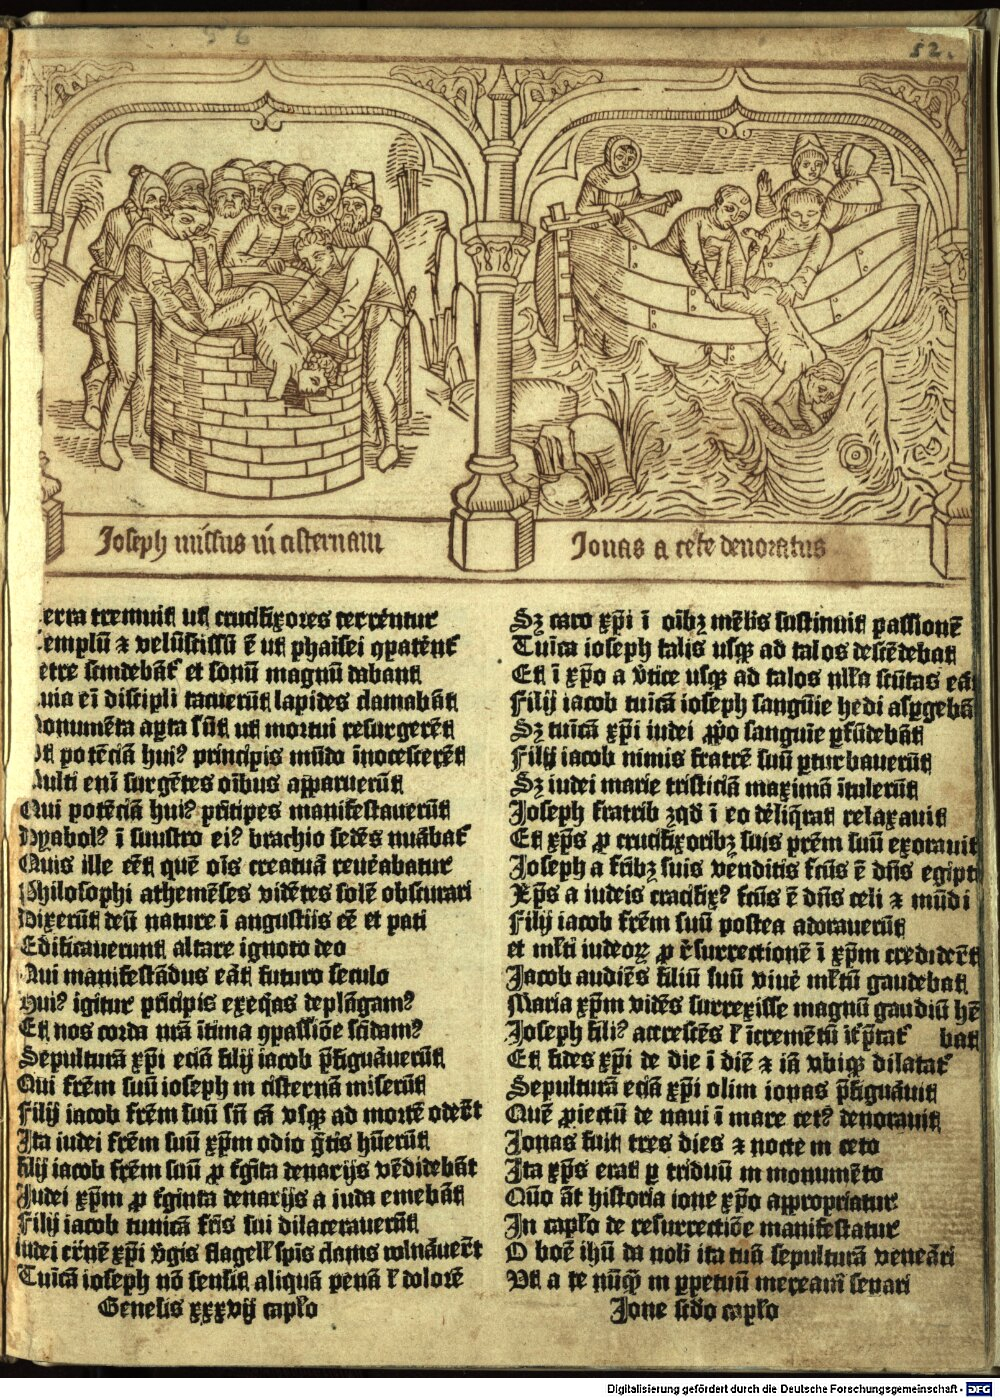 56
52.
Joseph missus in cisternam
Jonas a cete devoratus
erra tremuit ut crucifixores terrerentur
emplū ⁊ velū scissū ē ut phaisei
etre scindebāt et sonū magnū dabant
uia eī discipli tacuerūt lapides clamabāt
onumēta apta sūt ut mortui resurgerēt
ut potēciā huiꝰ principis mūdo īnotescerēt
ulti enī surgētes oībus apparuerūt
Qui potēciā huiꝰ pncipes manifestauerūt
Dyabolꝰ ī sinistro eiꝰ brachio sedēs
Quis ille eēt quē oīs creatuā reuēabatur
Philosophi athemēses vidētes solē obscurari
Dixerūt deū nature ī angustijs eē et pati
Edificauerunt altare ignoto deo
Qui manifestādus eāt futuro seculo
Huiꝰ igitur pncipis exeqas deplāgamꝰ
Et nos corda nrā ītima ꝯpassiōe scīdamꝰ
Sepulturā xpī eciā filij iacob pfiguāuerūt
Qui frēm suū ioseph in cisternā miserūt
Filij iacob frēm suū sn cā vsqꝫ ad mortē oderūt
Ita iudei frēm suū xpm odio gtis hūerūt
filij iacob frēm suū ꝓ tginta denarijs vēdidebāt
Judei xpm ꝓ tginta denarijs a iuda emebāt
Filij iacob tunicā fris sui dilacerauerūt
iudei carnē xpī vgis flagell spīs clauis wlnāuerūt
Tuīcā ioseph nō sensit aliquā penā ł dolorē
Genesis xxxvij caplo
Sꝫ caro xpī ī oībꝫ mēbis sustinuit passionē
Tuīca ioseph talis usqꝫ ad talos descēdebat
Et ī xpo a vtice usqꝫ ad talos nlla
Filij iacob tuīcā ioseph sanguīe hedi aspgebāt
Sꝫ tuīcā xpī iudei ꝓpo sanguīe pfūdebāt
Filij iacob nimis fratrē suū pturbauerūt
Sꝫ iudei marie tristiciā maximā ītulerūt
Joseph fratribꝫ qd ī eo deliqrāt relaxauit
Et xps ꝓ crucifixoribꝫ suis prēm suū exorauit
Joseph a fribꝫ suis venditis fcus ē dns egipti
Xps a iudeis crucifixꝰ fcus ē dns celi ⁊ mūdi
Filij iacob frēm suū postea adorauerūt
et mlti iudeoꝝ ꝓ resurrectionē ī xpm crediderūt
Jacob audiēs filiū suū viuē mltū gaudebat
Maria xpm vidēs surrexisse magnū gaudiū hē
Joseph filiꝰ accrescēs ł īcremētū bat
Et fides xpī de die ī diē ⁊ iā vbiqꝫ dilatat
Sepulturā eciā xpī olim ionas pfiguāuit
Quē ꝓiectū de naui ī mare cetꝰ deuorauit
Jonas fuit tres dies ⁊ nocte in ceto
Ita xps erat p triduū in monumēto
Qūo āt historia ione xpo appropriatur
In caplo de resurrectiōe manifestatur
O boē ihū da nob ita tuā sepulturā veneāri
Ut a te nūqꝫ in ppetuū meream separi
Jone scdo caplo
Digitalisierung gefördert durch die Deutsche Forschungsgemeinschaft - DFG